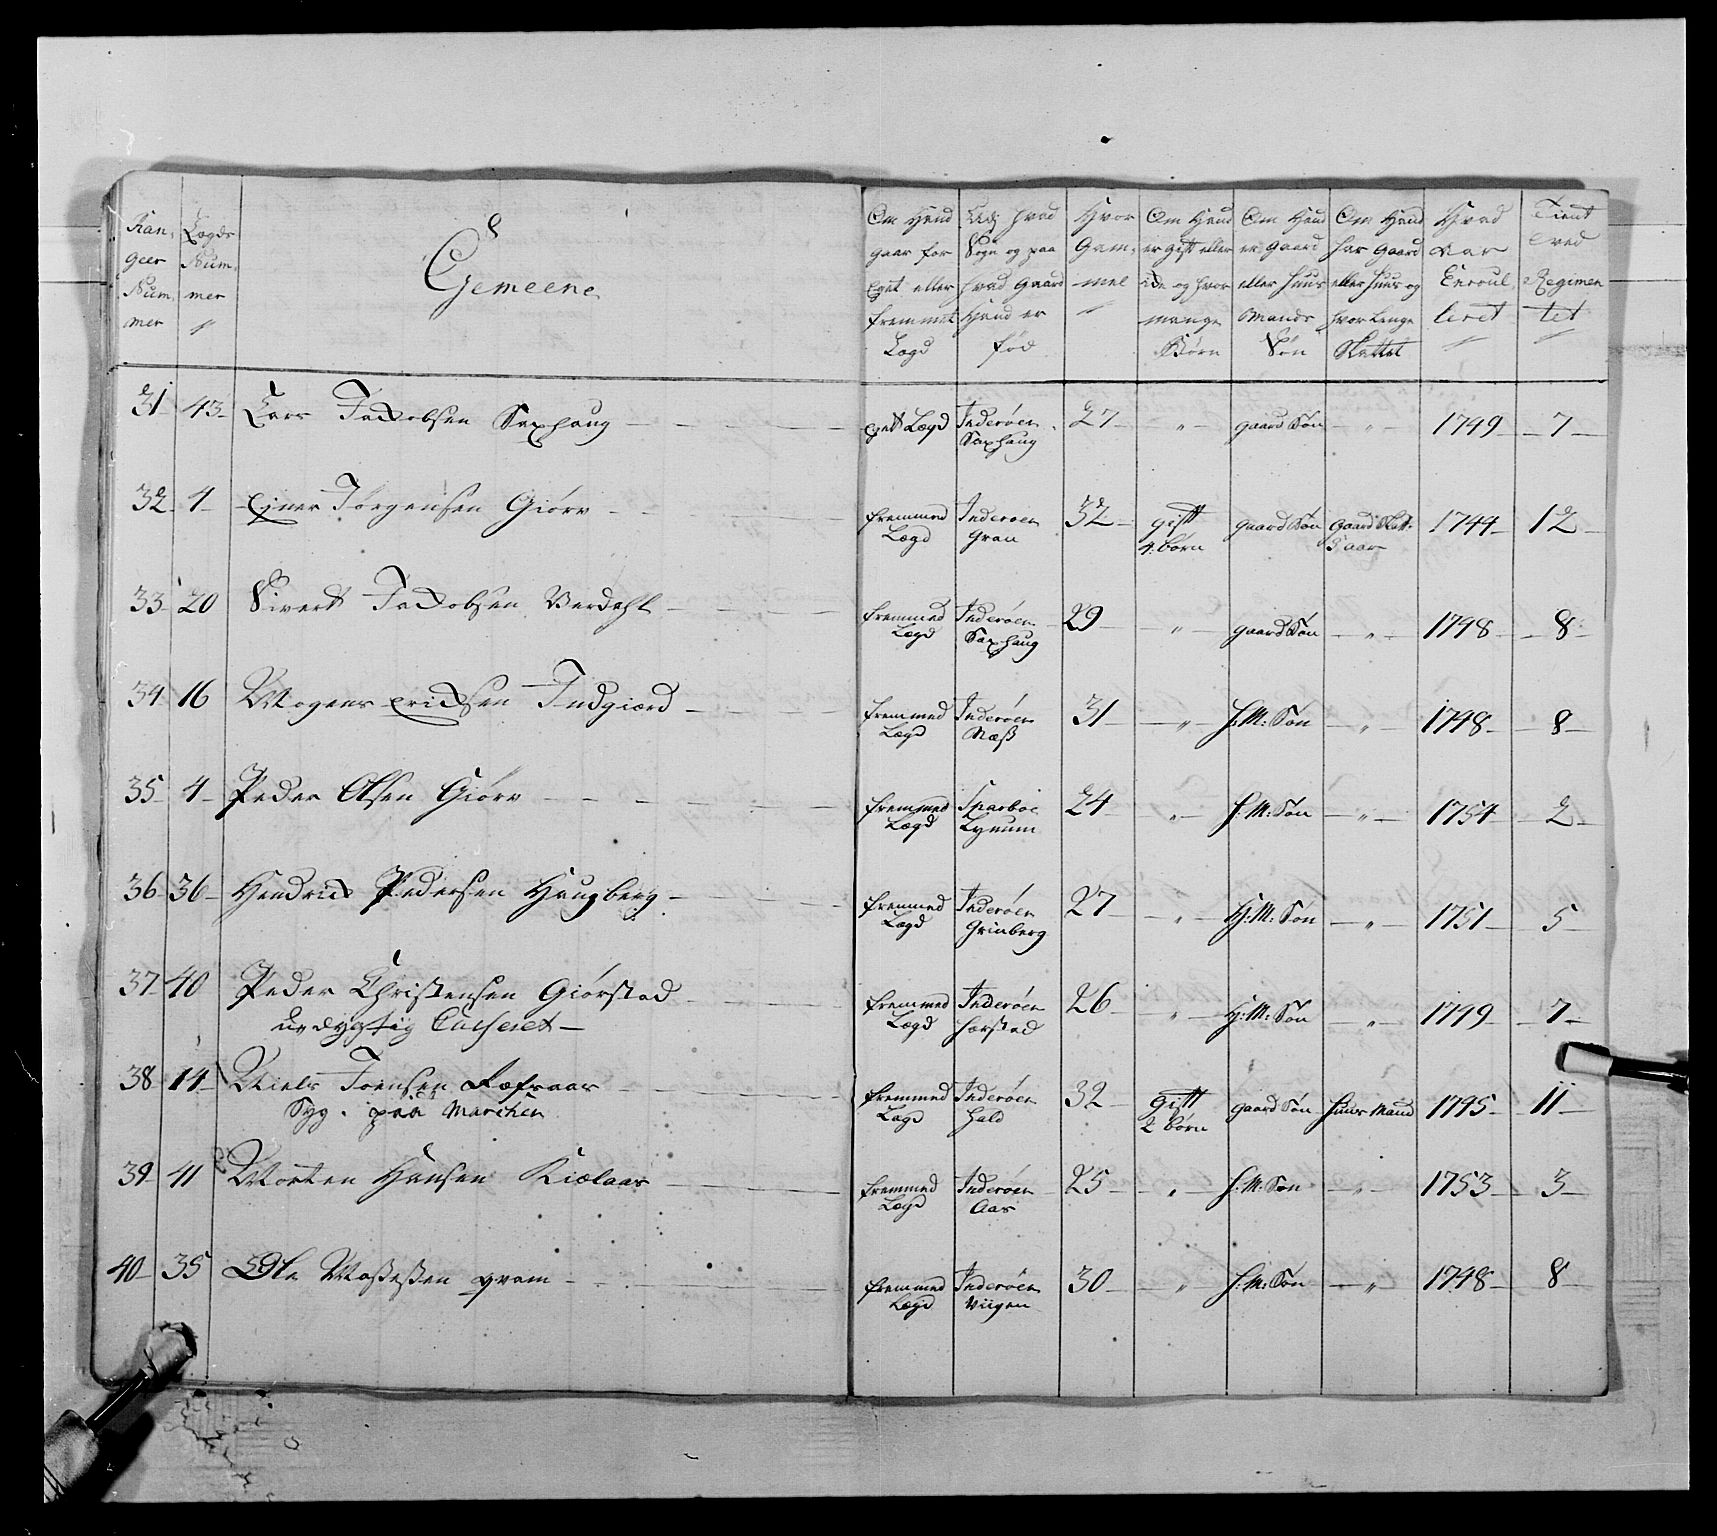 Ran-
geer
Num-
mer
Lægds
Num-
mer
Gemeene
Om Hand
gaar for
Eget eller
fremmet
Lægd
Udj hvad
Sogn og paa
hvad Gaard
Hand er
fød
Hvor
Gam-
mel
Om Hand
er gift eller
ide og hvor
mange
Børn
Om Hand
er Gaard
eller Huus
Mands
Søn
Om Hand
har Gaard
eller Huus og
hvor lenge
Skattet
Hvad
Aar
Enroul-
leret
Tient
ved
Regimen
tet
31 43 Lars Jackobsen Saxhaug
eget Lægd Inderøen Saxhaug 27 " gaard Søn " 1749 7
32 4 Ejner Jørgensen Giørv
fremmed Lægd Inderøen Gran 32 gift 4. børn gaard Søn Gaard Skatt: 5 aar 1744 12
33 20 Sivert Jackobsen Verdahl
fremmed Lægd Inderøen Saxhaug 29 " gaard Søn " 1748 8
34 16 Mogens Ericksen Indgiærd
fremmed Lægd Inderøen Næss 31 " H: M: Søn " 1748 8
35 4 Peder Olsen Giørv
fremmed Lægd Sparboe Lynum 24 " H: M: Søn " 1754 2
36 36 Hendrick Pedersen Haugberg
fremmed Lægd Inderøen Grinberg 27 " H: M: Søn " 1751 5
37 40 Peder Christensen Giørstad
udygtig Casseret
fremmed Lægd Inderøen Horstad 26 " H: M: Søn " 1749 7
38 14 Niels Joensen Ræfraar
Syg. paa Marchen
fremmed Lægd Inderøen Hald 32 gift 2 børn gaard Søn Huus Mand 1745 11
39 41 Morten Hansen Kiælaar
fremmed Lægd Inderøen Aas 25 " H: M: Søn " 1753 3
40 35 Ole Mosessen Qvam
fremmed Lægd Inderøen Viigen 30 " H: M: Søn " 1748 8